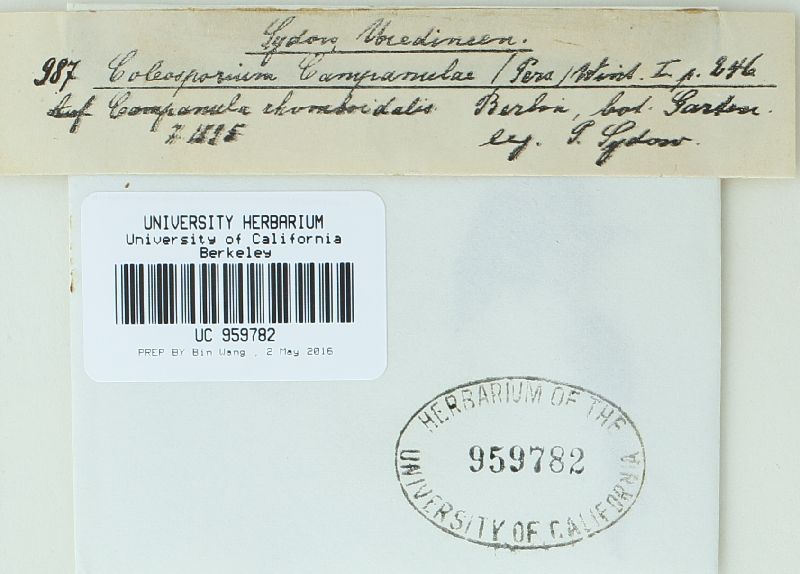 Sydow, Uredineen.
987 Coleosporium Campanulae (Pers.) Wint. I. p. 246
Auf Campanula rhomboidalis Berlin, bot. Garten.
7. 1895 leg. P. Sydow.
UNIVERSITY HERBARIUM
University of California
Berkeley
UC 959782
PREP BY Bin Wang , 2 May 2016
HERBARIUM OF THE
959782
UNIVERSITY OF CALIFORNIA